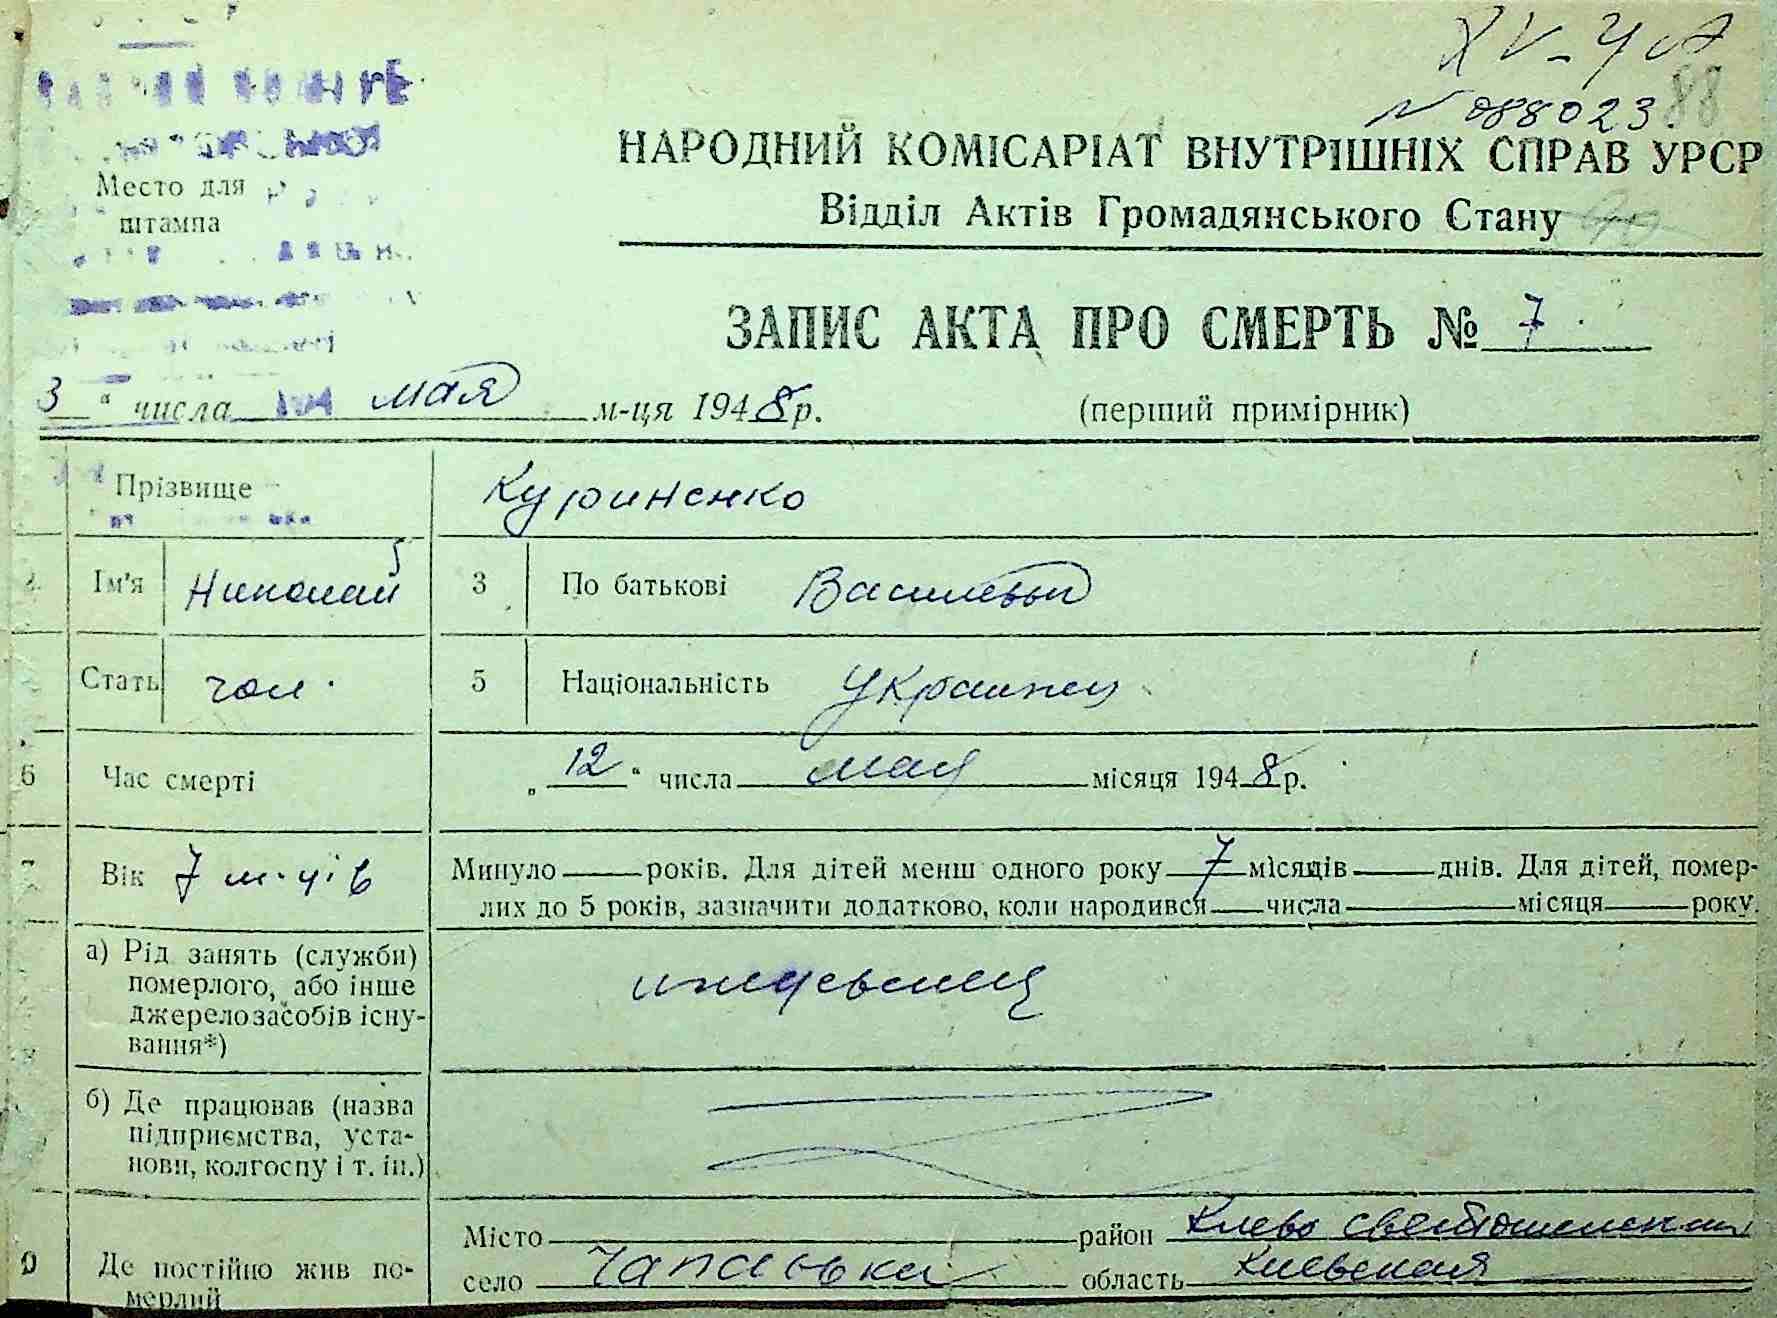 XV-ЧА
№ 088023.
88
НАРОДНИЙ КОМІСАРІАТ ВНУТРІШНІХ СПРАВ УРСР
Місто для
штампа
Відділ Актів Громадянського Стану
ЗАПИС АКТА ПРО СМЕРТЬ № 7
3 " числа мая м-ця 1948 р.
(перший примірник)
Прізвище Куриненко
Ім'я Николай 3 По батькові Васильевич
Стать чол. 5 Національність Украинец
6 Час смерті „ 12 " числа мая місяця 1948 р.
7 Вік 7 м-ців Минуло років. Для дітей менш одного року 7 місяців днів. Для дітей, помер-
лих до 5 років, зазначити додатково, коли народився числа місяця року.
а) Рід занять (служби)
померлого, або інше
джерело засобів існу-
вання*)
иждевенец
б) Де працював (назва
підприємства, уста-
нови, колгоспу і т. ін.)
Місто район Киево Святошинский
9 Де постійно жив по-
мерлий
село Чапаевка область Киевская